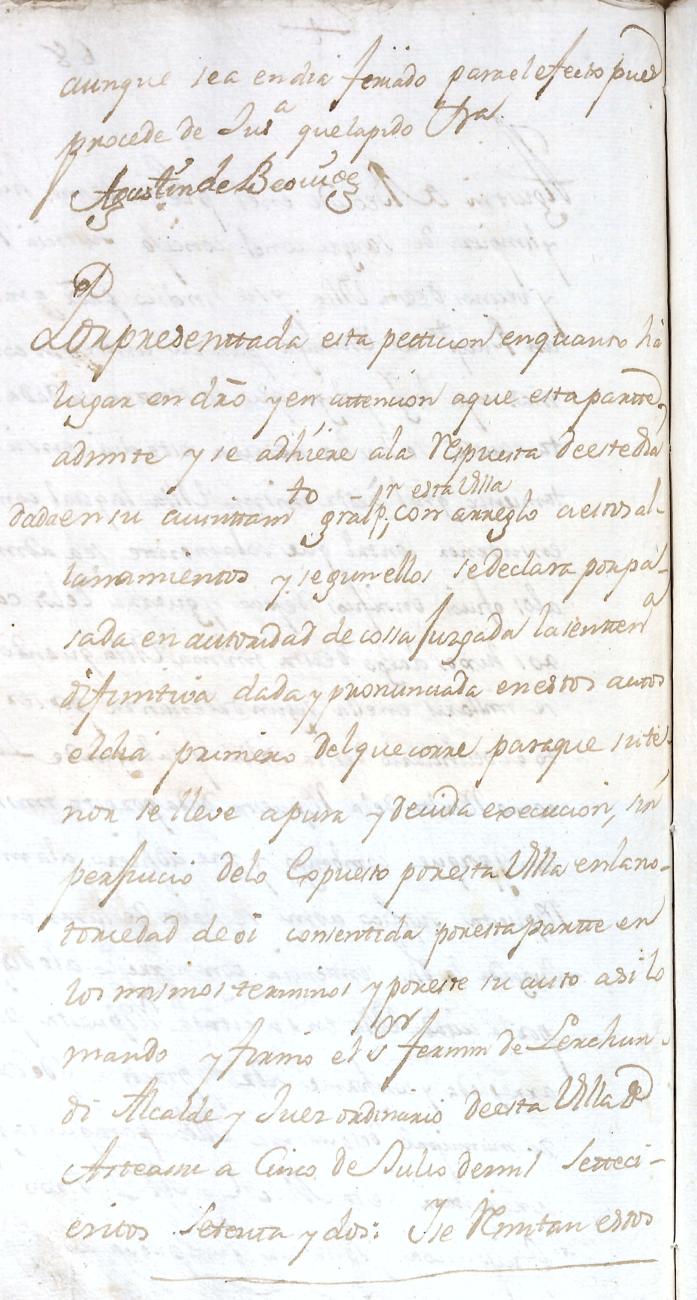 aunque sea en dia feriado para el efecto pues
procede de Jusª que lapido Vtra
Agustin de Beovide
Por presenttada esta peticion enquanto há
lugar en dro y en attencion a que esta partte
admite y se adhiere ala Respuesta de este dia
dada en su aiunttamto gral pr esta Villa con arreglo a estos al-
lanamientos y segun ellos se declara por pa-
sada en autoridad de cossa Juzgada la senttenª
difinitiva dada y pronunciada en estos autos
el dia primero del que corre para que su te-
nor se lleve a pura y devida execucion, sin
perjucio delo Expuesto por esta Villa en la no-
toriedad de oi consentida por esta partte en
los mismos terminos y por este su auto asi lo
mando y firmo el Sor fermin de Lerchun-
di Alcalde y Juez ordinario de esta Villa de
Asteasu a Cinco de Julio de mil Setteci-
entos Setenta y dos: Y se Remitan estos